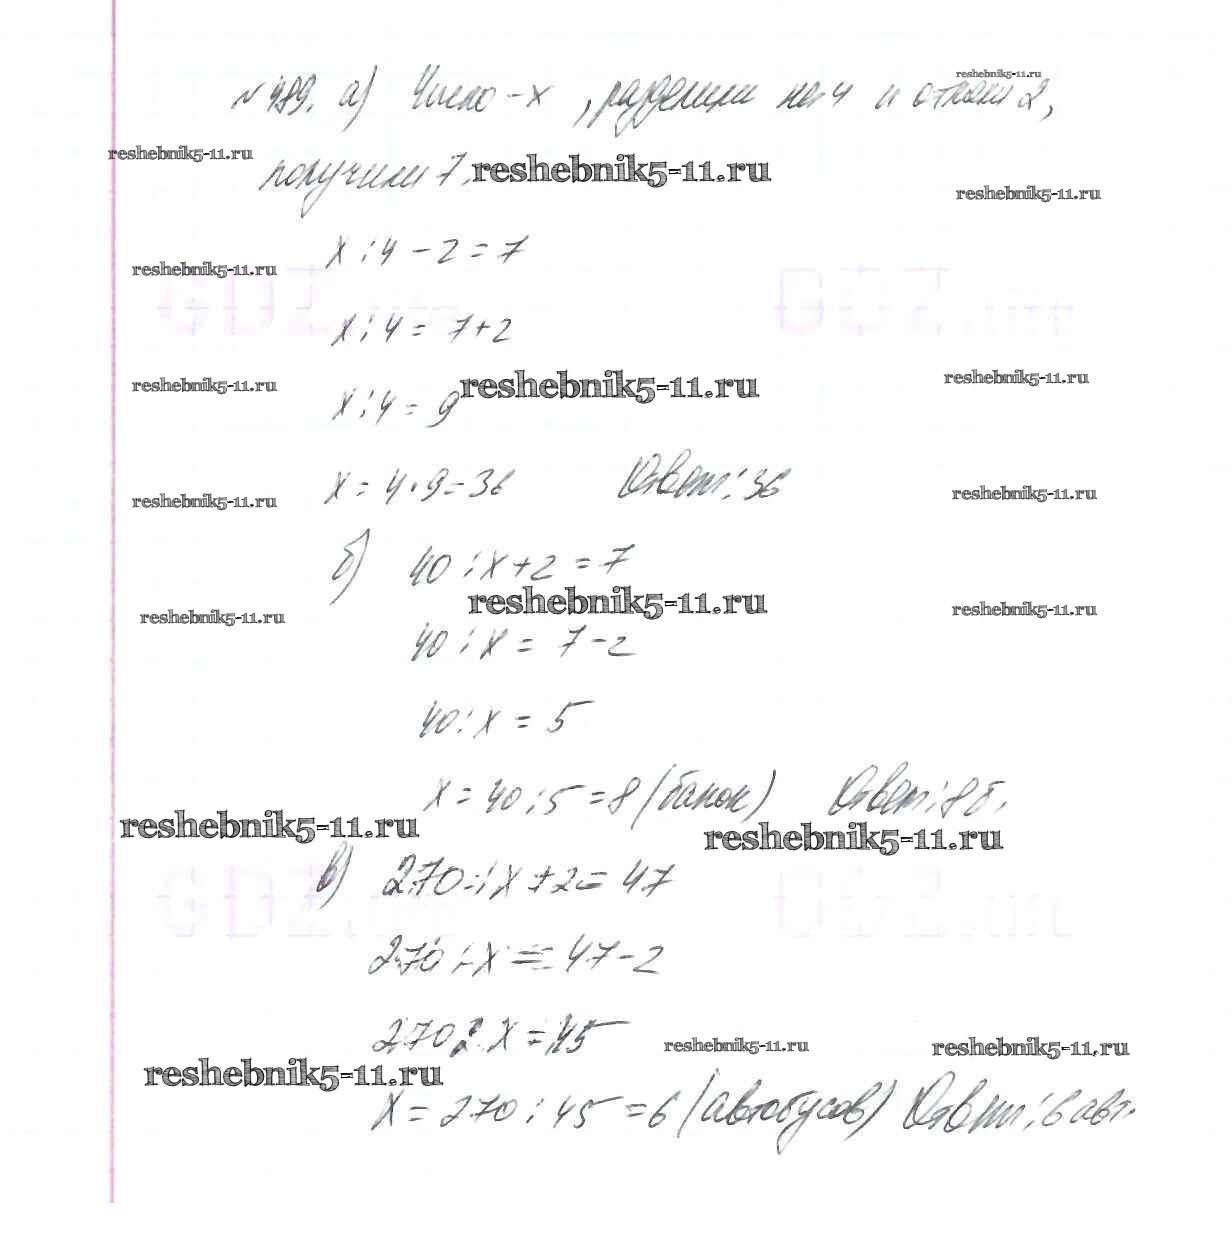 № 489. а) Число - х, разделили на 4 и отняли 2,
reshebnik5-11.ru
reshebnik5-11.ru
получили 7.
reshebnik5-11.ru
reshebnik5-11.ru
х : 4 - 2 = 7
reshebnik5-11.ru
х : 4 = 7 + 2
reshebnik5-11.ru
reshebnik5-11.ru
reshebnik5-11.ru
х : 4 = 9
х = 4 · 9 = 36 Ответ: 36
reshebnik5-11.ru
reshebnik5-11.ru
б) 40 : х + 2 = 7
reshebnik5-11.ru
reshebnik5-11.ru
reshebnik5-11.ru
40 : х = 7 - 2
40 : х = 5
х = 40 : 5 = 8 (банок) Ответ: 8 б.
reshebnik5-11.ru
reshebnik5-11.ru
в) 270 : х + 2 = 47
270 : х = 47 - 2
270 : х = 45
reshebnik5-11.ru
reshebnik5-11.ru
reshebnik5-11.ru
х = 270 : 45 = 6 (автобусов) Ответ: 6 авт.